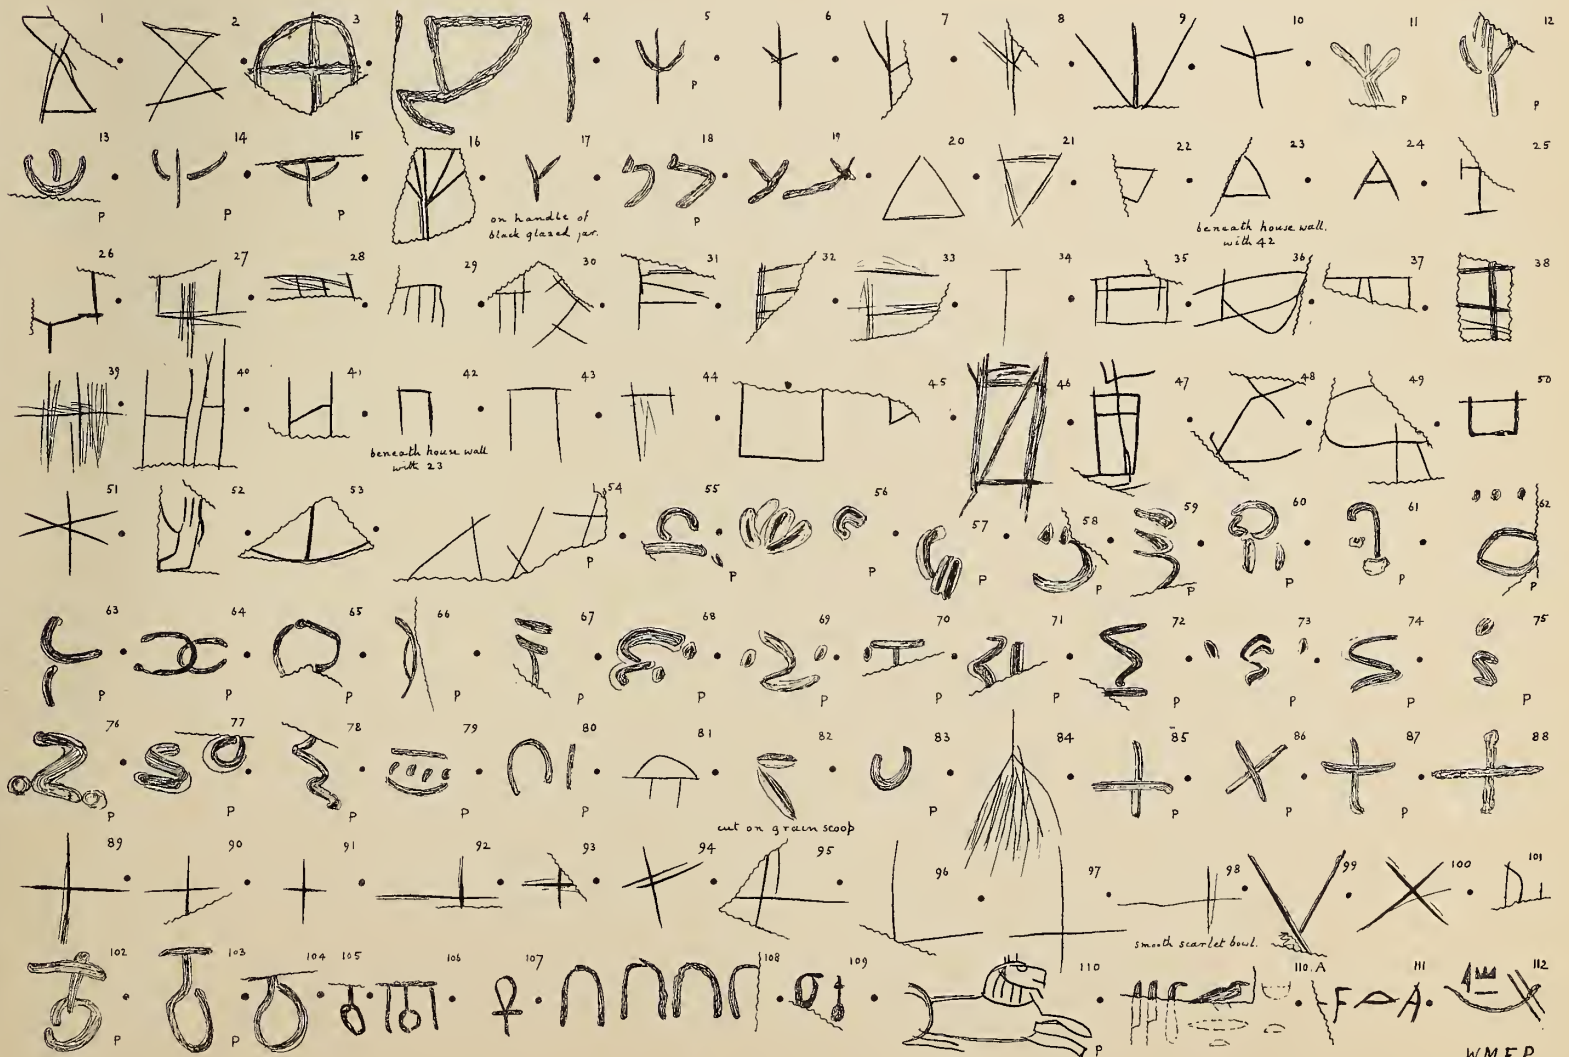 1 2 3 4 5 6 7 8 9 10 11 12
P P P
13 14 15 16 17 18 19 20 21 22 23 24 25
P P P P
on handle of
black glazed jar.
beneath house wall.
with 42
26 27 28 29 30 31 32 33 34 35 36 37 38
39 40 41 42 43 44 45 46 47 48 49 50
beneath house wall
with 23
51 52 53 54 55 56 57 58 59 60 61 62
P P P P P P P P P
63 64 65 66 67 68 69 70 71 72 73 74 75
P P P P P P P P P P P P P
76 77 78 79 80 81 82 83 84 85 86 87 88
P P P P P P P P P P
cut on grain scoop
89 90 91 92 93 94 95 96 97 98 99 100 101
smooth scarlet bowl.
102 103 104 105 106 107 108 109 110 110.A 111 112
P P P
W M F P